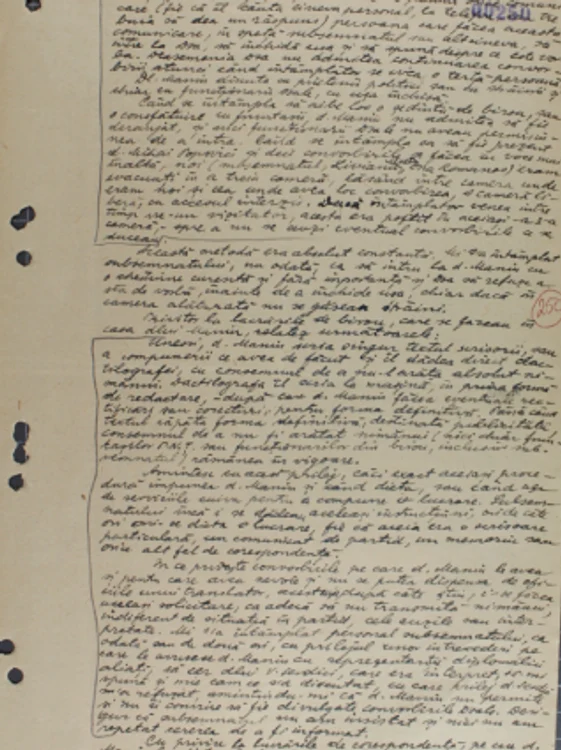 care (fie că îl căuta cineva personal, la tele
00250
buia să dea un răspuns) persoana care făcea această
comunicare, în speță subsemnatul sau altcineva,
intre la Dsa, să închidă ușa și să spună despre ce este vor
ba. Deasemenea nu admitea continuarea convor-
birii atunci când întâmplător se ivea o terță persoană
Dl. Maniu discuta cu prietenii politici sau cu străinii și
chiar cu funcționarii Dsale, cu ușa închisă.
Când se întâmpla să aibe loc o ședință de birou, sau
o consfătuire cu fruntașii, d. Maniu nu admitea să fie
deranjat, și nici funcționarii Dsale nu aveau permisiu-
nea de a intra. Când se întâmpla ca să fie prezent
d. Mihai Popovici și deci convorbirile se făcea cu voce mai
înaltă, noi (subsemnatul, Livianu, Romanos) eram
evacuați în a treia cameră, lăsând între camera unde
eram noi și cea unde avea loc convorbirea, o cameră li-
beră, cu accesul interzis. Dacă întâmplător venea între
timp vre-un vizitator, acesta era poftit în aceiași a 3-a
cameră, spre a nu se auzi eventual convorbirile ce se
duceau.
Această metodă era absolut constantă. Mi s'a întâmplat
subsemnatului, nu odată, ca să intru la d. Maniu cu
o chestiune curentă și fără importanță și Dsa să refuze a
sta de vorbă, înainte de a închide ușa, chiar dacă în
camera alăturată nu se găseau străini.
250
Privitor la lucrările de birou, care se făceau în
casa dlui Maniu, relatez următoarele:
Uneori, d. Maniu scria singur textul scrisorii, sau
a compunerii ce avea de făcut și îl dădea direct dac-
tilografei, cu consemnul de a nu-l arăta absolut ni-
mănui. Dactilografa îl scria la mașină, în prima formă
de redactare, după care d. Maniu făcea eventuale rec-
tificări sau corecturi, pentru forma definitivă. Până când
textul căpăta forma definitivă, destinată publicității
consemnul de a nu fi arătat nimănui (nici chiar frun-
tașilor P.N.Ț. sau funcționarilor din birou, inclusiv sub-
semnatul) rămânea în vigoare.
Amintesc cu acest prilej, căci exact aceiași proce-
dură impunea d. Maniu și când dicta, sau când uza
de serviciile cuiva pentru a compune o lucrare. Subsem-
natului încă i se dădeau aceleași instrucțiuni, ori de câte
ori i se dicta o lucrare, fie că aceia era o scrisoare
particulară, un comunicat de partid, un memoriu sau
orice alt fel de corespondență.
In ce privește convorbirile pe care d. Maniu le avea
și pentru care avea nevoie și nu se putea dispensa de ofi-
ciile unui translator, acestuia, după câte știu, i se făcea
aceiași solicitare, ca adecă să nu transmită nimănui,
indiferent de situația în partid, cele auzite sau inter-
pretate. Mi s'a întâmplat personal subsemnatului, ca
odată sau de două ori, cu prilejul unor întrevederi pe
care le avusese d. Maniu cu reprezentanții diplomatici
aliați, să cer dlui V. Serdici, care era interpret, să-mi
spună și mie cam ce s'a discutat, cu care prilej d. Serdici
m'a refuzat, amintindu-mi că d. Maniu nu permite
și nu-i convine să fie divulgate convorbirile Dsale. Desi-
gur că subsemnatul nu am insistat și nici nu am
repetat cererea de a fi informat.
Cu privire la lucrările de corespondență, pe cari d.